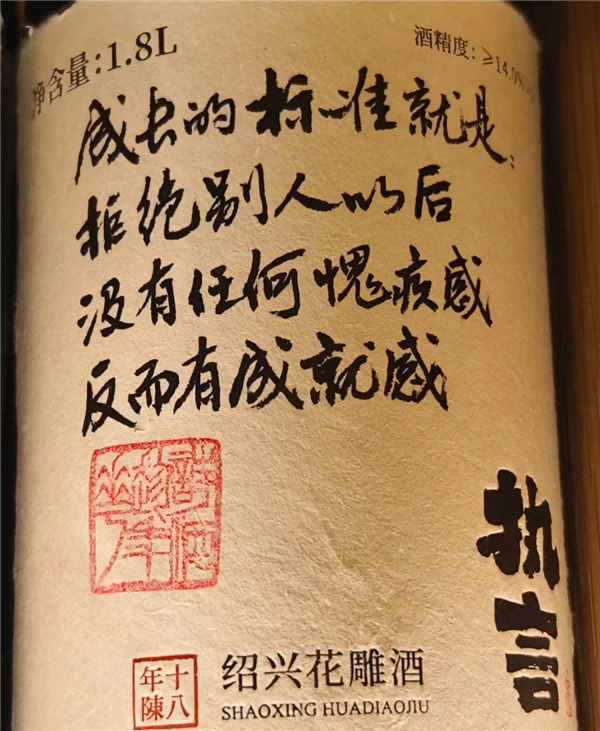 净含量:1.8L
酒精度:≥14.0%
成长的标准就是:
拒绝别人以后
没有任何愧疚感
反而有成就感
执言
十八年陳
绍兴花雕酒
SHAOXING HUADIAOJIU